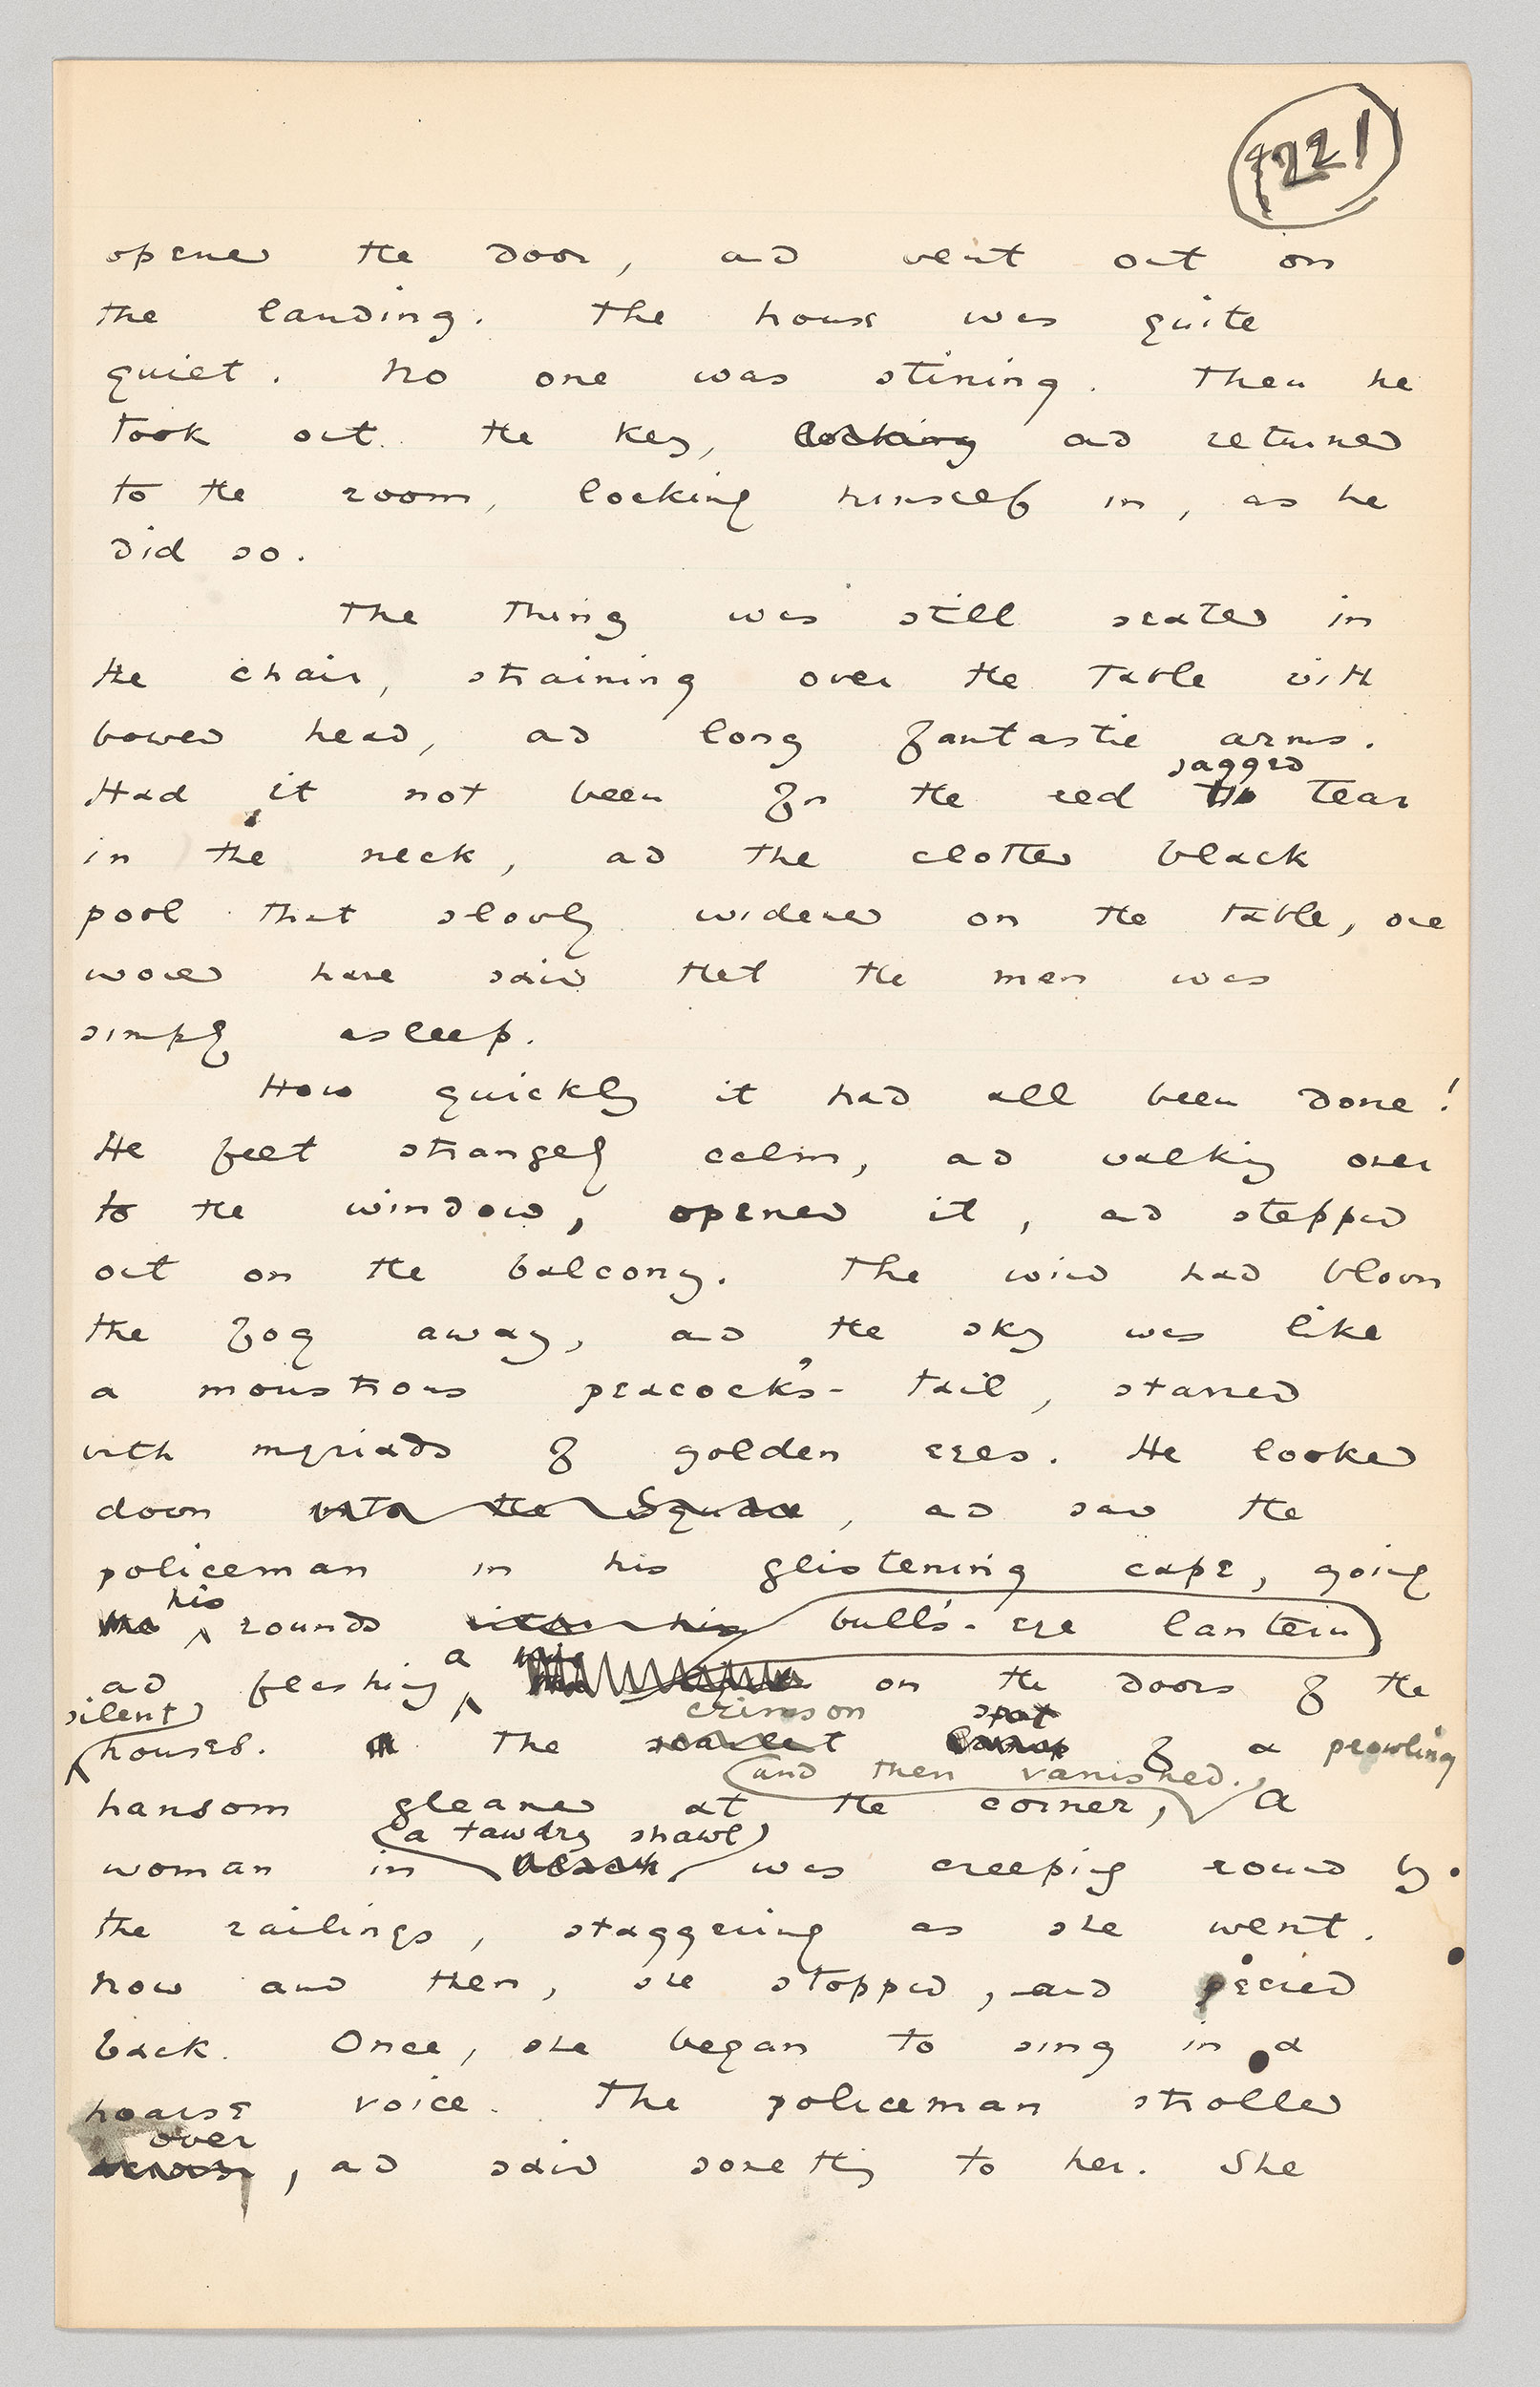 221
opened the door, and went out on
the landing. The house was quite
quiet. No one was stirring. Then he
took out the key, locking and returned
to the room, locking himself in, as he
did so.
The thing was still seated in
the chair, straining over the table with
bowed head, and long fantastic arms.
jagged
Had it not been for the red tear
in the neck, and the clotted black
pool that slowly widened on the table, one
would have said that the man was
simply asleep.
How quickly it had all been done!
He felt strangely calm, and walking over
to the window, opened it, and stepped
out on the balcony. The wind had blown
the fog away, and the sky was like
a monstrous peacock's-tail, starred
with myriads of golden eyes. He looked
down into the Square, and saw the
policeman in his glistening cape, going
his
the rounds with his bull's-eye lantern
a
and flashing on the doors of the
silent crimson spot
houses. The scarlet of a prowling
and then vanished.
hansom gleamed at the corner, A
a tawdry shawl
woman in black was creeping round by
the railings, staggering as she went.
Now and then, she stopped, and peered
back. Once, she began to sing in a
hoarse voice. The policeman strolled
over
across, and said something to her. She